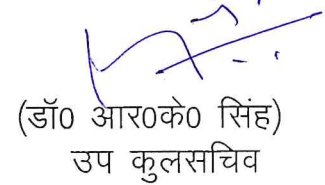 (डॉ0 आर0के0 सिंह)
उप कुलसचिव